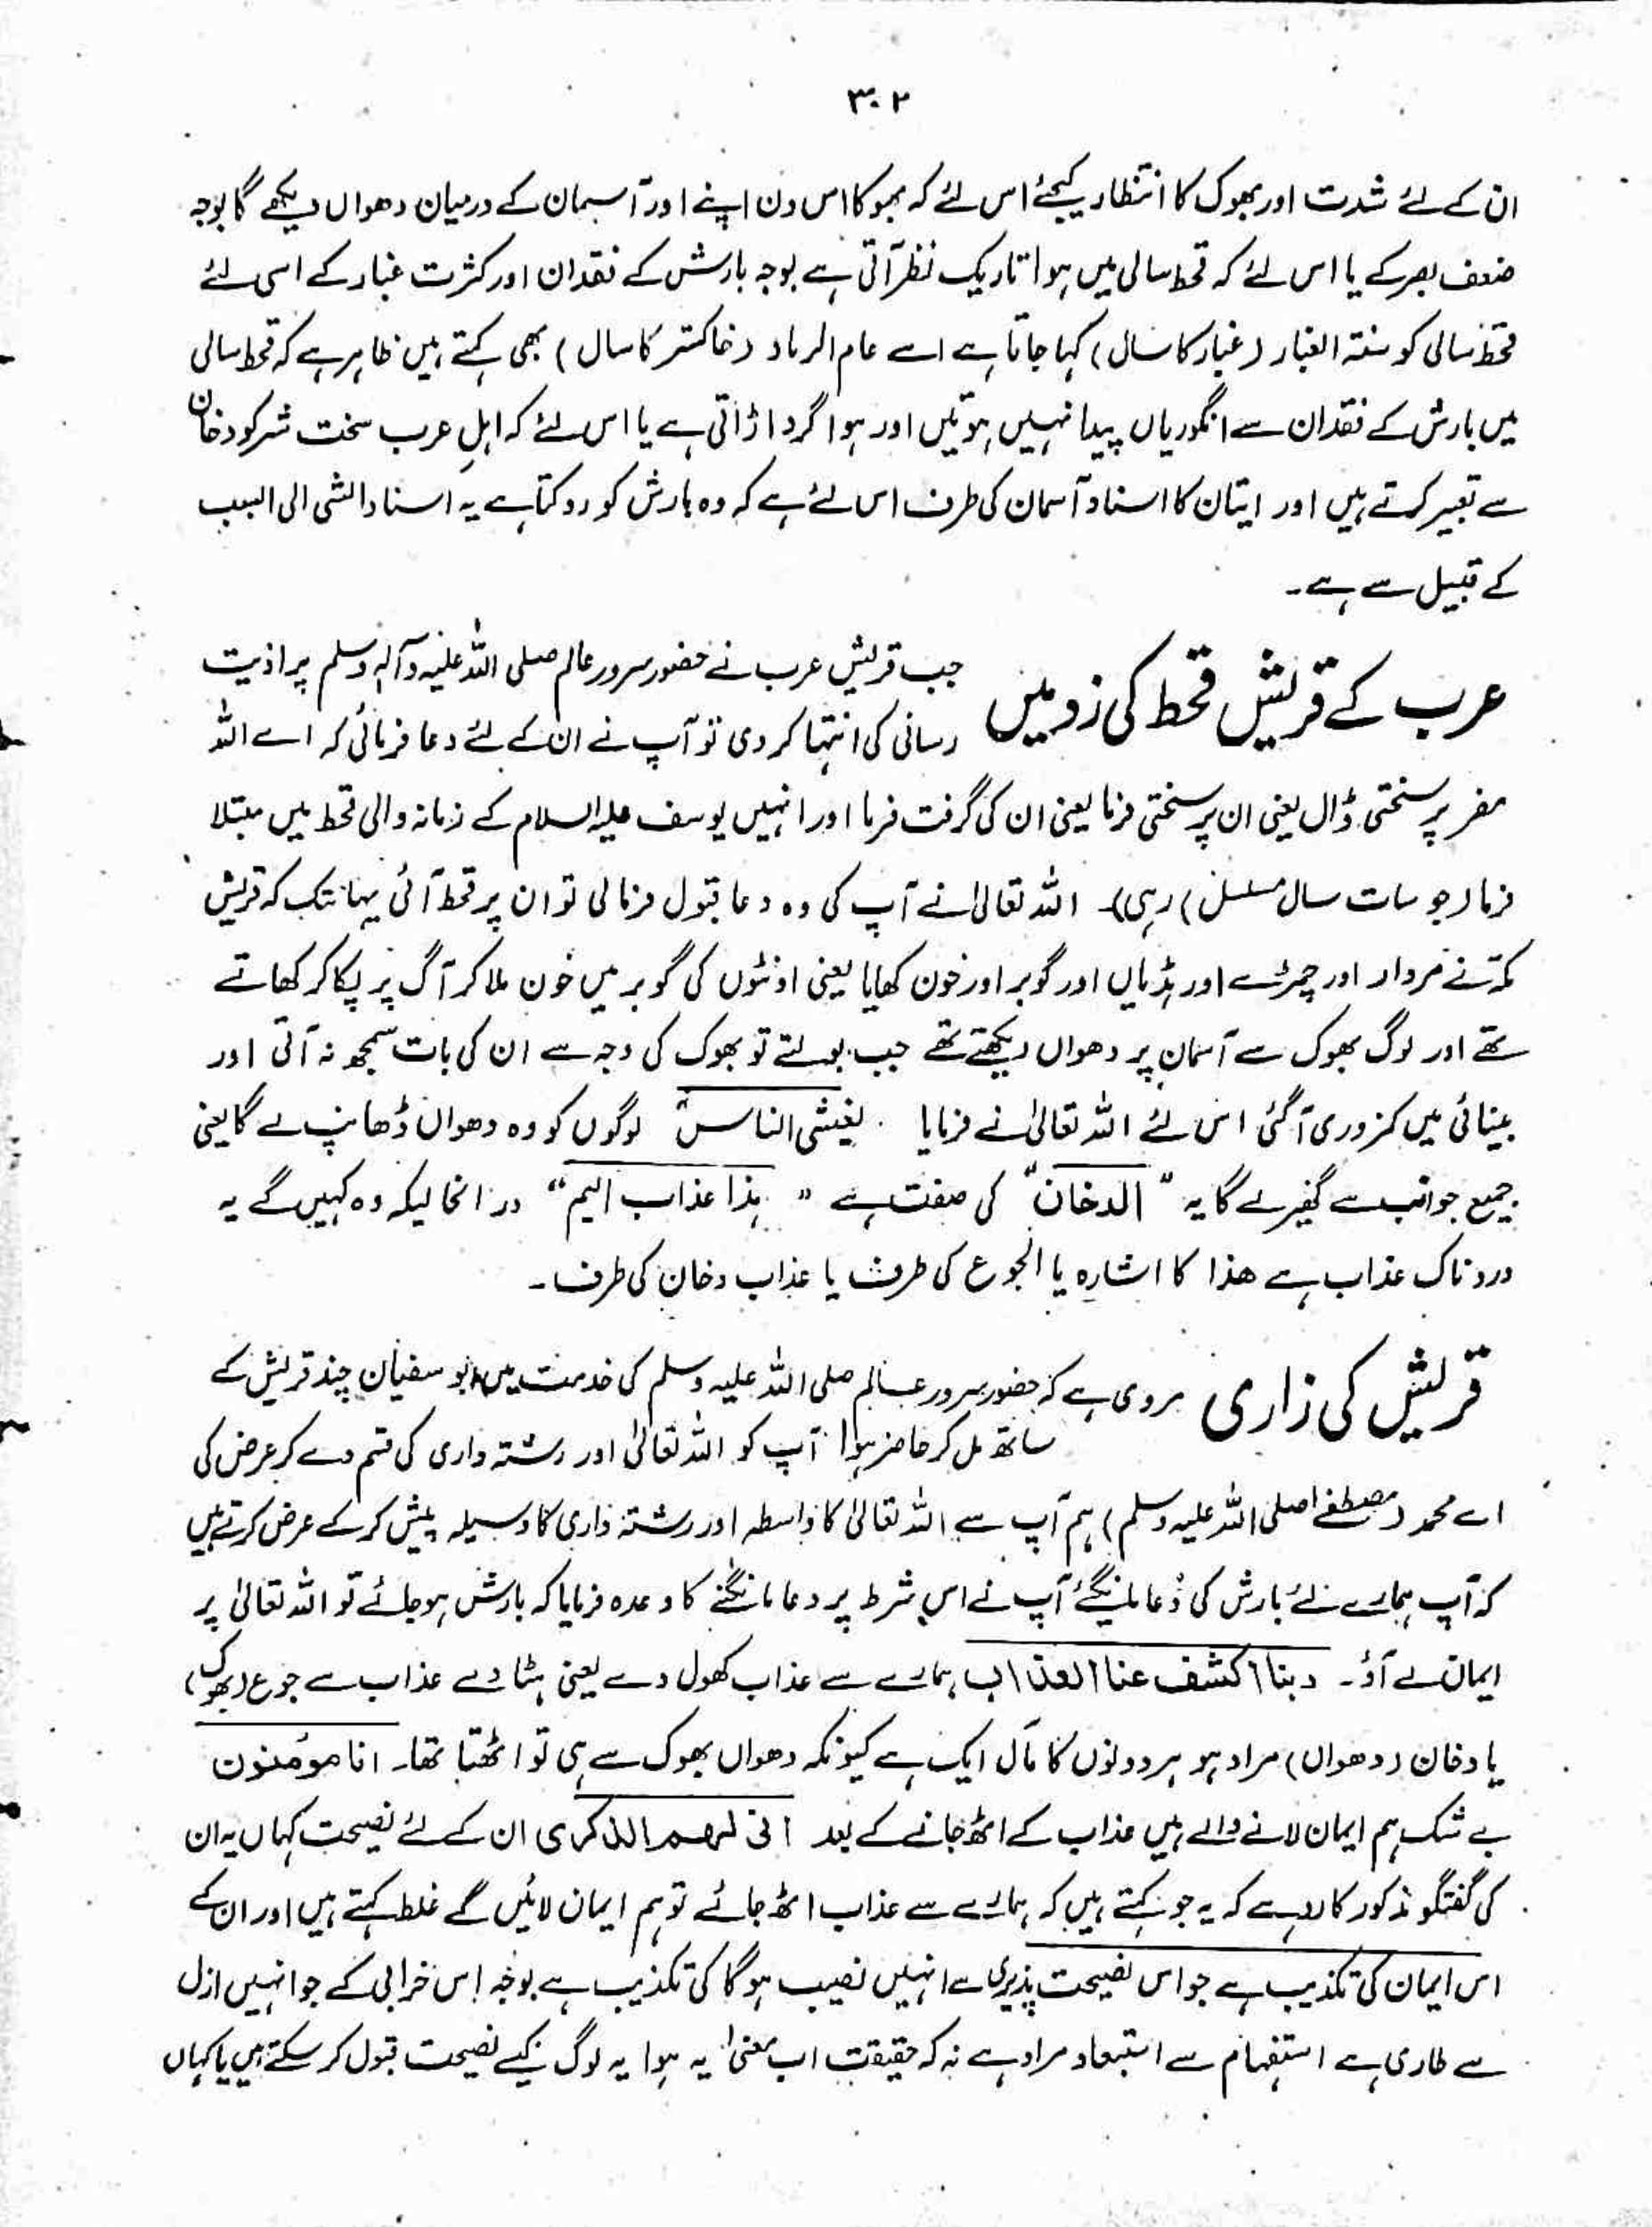 ۳۰۲
ان کے لئے شدت اور بھوک کا انتظار کیجئے اس لئے کہ بھوکا اس دن اپنے اور آسمان کے درمیان دھواں دیکھے گا بوجہ
ضعف بصر کے یا اس لئے کہ قحط سالی میں ہوا تاریک نظر آتی ہے بوجہ بارش کے فقدان اور کثرت غبار کے اسی لئے
قحط سالی کو سنۃ الغبار (غبار کا سال) کہا جاتا ہے اسے عام الرماد (خاکستر کا سال) بھی کہتے ہیں ظاہر ہے کہ قحط سالی
میں بارش کے فقدان سے انگوریاں پیدا نہیں ہوتیں اور ہوا گرد اڑاتی ہے یا اس لئے کہ اہلِ عرب سخت شر کو دخان
سے تعبیر کرتے ہیں اور ایتان کا اسناد آسمان کی طرف اس لئے ہے کہ وہ بارش کو روکتا ہے یہ اسناد الشی الی السبب
کے قبیل سے ہے۔
عرب کے قریش قحط کی زد میں
جب قریش عرب نے حضور سرور عالم صلی اللہ علیہ وآلہٖ وسلم پر اذیت
رسانی کی انتہا کر دی تو آپ نے ان کے لئے دعا فرمائی کہ اے اللہ
مضر پر سختی ڈال یعنی ان پر سختی فرما یعنی ان کی گرفت فرما اور انہیں یوسف علیہ السلام کے زمانہ والی قحط میں مبتلا
فرما (جو سات سال مسلسل) رہی)۔ اللہ تعالیٰ نے آپ کی وہ دعا قبول فرما لی تو ان پر قحط آئی یہانتک کہ قریش
مکہ نے مردار اور چمڑے اور ہڈیاں اور گوبر اور خون کھایا یعنی اونٹوں کی گوبر میں خون ملا کر آگ پر پکا کر کھاتے
تھے اور لوگ بھوک سے آسمان پر دھواں دیکھتے تھے جب بولتے تو بھوک کی وجہ سے ان کی بات سمجھ نہ آتی اور
بینائی میں کمزوری آگئی اس لئے اللہ تعالیٰ نے فرمایا ۔ یغشی الناس" لوگوں کو وہ دھواں ڈھانپ لے گا یعنی
جمیع جوانب سے گھیر لے گا یہ "الدخان" کی صفت ہے "ہذا عذاب الیم" درانحالیکہ وہ کہیں گے یہ
دردناک عذاب ہے ھذا کا اشارہ یا الجوع کی طرف یا عذاب دخان کی طرف۔
قریش کی زاری
مروی ہے کہ حضور سرور عالم صلی اللہ علیہ وسلم کی خدمت میں ابو سفیان چند قریش کے
ساتھ مل کر حاضر ہوا آپ کو اللہ تعالیٰ اور رشتہ داری کی قسم دے کر عرض کی
اے محمد (مصطفےٰ صلی اللہ علیہ وسلم) ہم آپ سے اللہ تعالیٰ کا واسطہ اور رشتہ داری کا وسیلہ پیش کر کے عرض کرتے ہیں
کہ آپ ہمارے لئے بارش کی دُعا مانگیئے آپ نے اس شرط پر دعا مانگنے کا وعدہ فرمایا کہ بارش ہو جائے تو اللہ تعالیٰ پر
ایمان لے آؤ۔ ربنا اکشف عنا العذاب ہمارے سے عذاب کھول دے یعنی ہٹا دے عذاب سے جوع (بھوک)
یا دخان (دھواں) مراد ہو ہر دونوں کا مآل ایک ہے کیونکہ دھواں بھوک سے ہی تو اٹھتا تھا۔ انا مؤمنون
بے شک ہم ایمان لانے والے ہیں عذاب کے اٹھ جانے کے بعد انی لہم الذکری ان کے لئے نصیحت کہاں یہ ان
کی گفتگو مذکور کا رد ہے کہ یہ جو کہتے ہیں کہ ہمارے سے عذاب اٹھ جائے تو ہم ایمان لائیں گے غلط کہتے ہیں اور ان کے
اس ایمان کی تکذیب ہے جو اس نصیحت پذیری سے انہیں نصیب ہوگا کی تکذیب ہے بوجہ اس خرابی کے جو انہیں ازل
سے طاری ہے استفہام سے استبعاد مراد ہے نہ کہ حقیقت اب معنیٰ یہ ہوا یہ لوگ کیسے نصیحت قبول کر سکتے ہیں یا کہاں